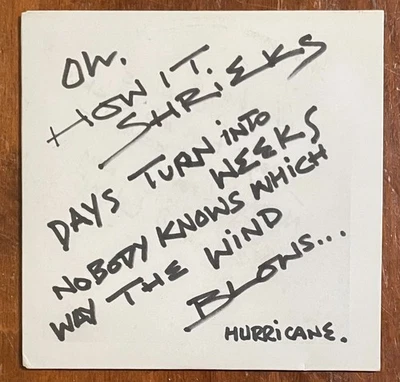 OH.
HOW IT.
SHRIEKS
DAYS TURN INTO
WEEKS
NOBODY KNOWS WHICH
WAY THE WIND
BLOWS...
HURRICANE.